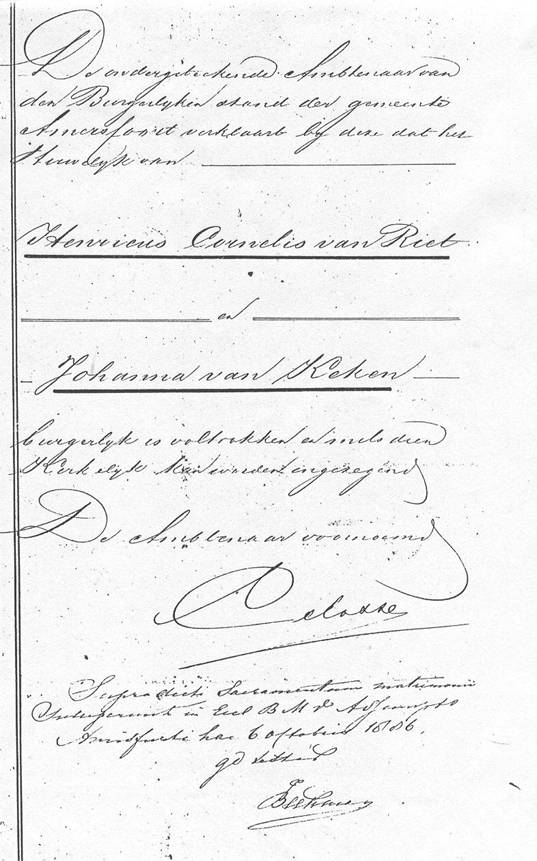 De ondergeteekende Ambtenaar van
den Burgerlyken stand der gemeente
Amersfoort verklaart by deze dat het
Huwelyk van
Henricus Cornelis van Riet
en
Johanna van Keken
burgerlyk is voltrokken en mits dien
Kerkelyk kan worden ingezegend
De Ambtenaar voornoemd
Supradicti Sacramentum matrimonii
in Eccl B M V Assumpto
Amisfurti hac 6 octobris 1886.